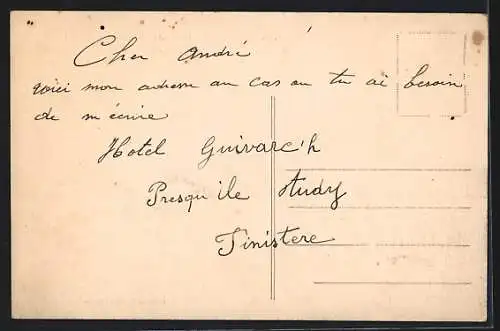 Cher André
voici mon adresse au cas ou tu ai besoin
de m'écrire
Hotel Guivarc'h
Presqu'ile Tudy
Finistere